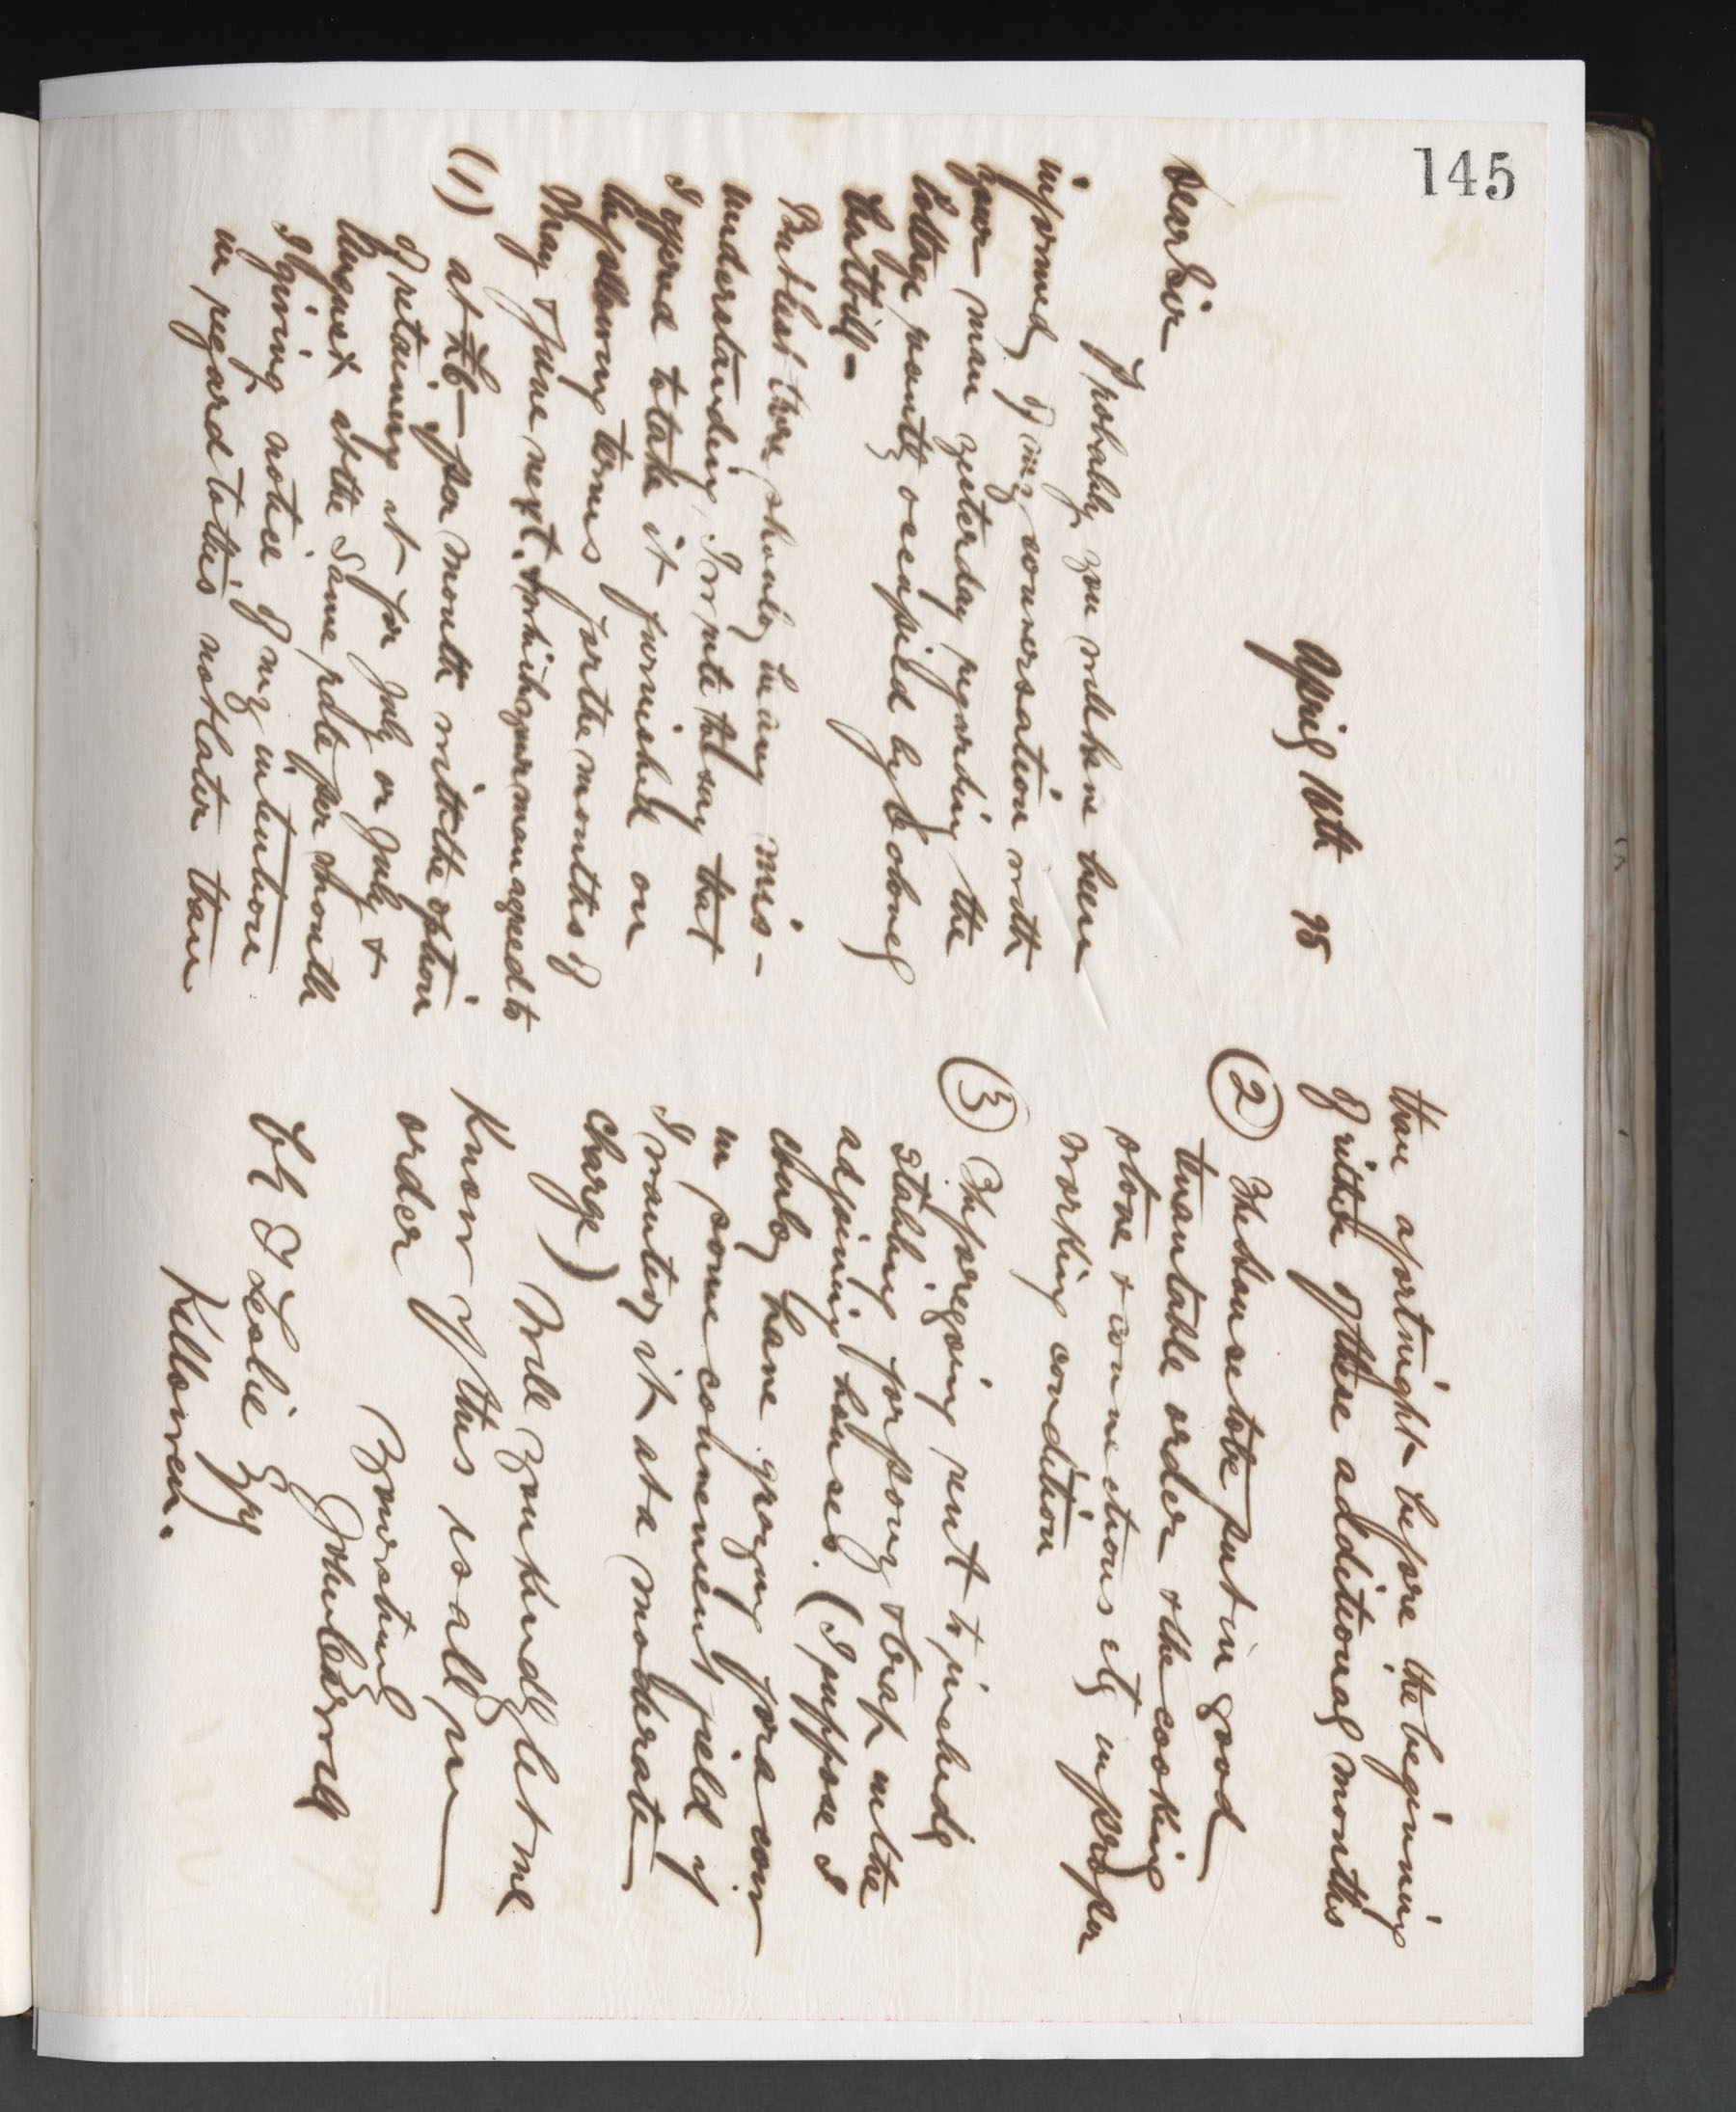 145
April 16th 95
Dear Sir
Probably you will have been
informed of my conversation with
your man yesterday regarding the
Cottage recently occupied by Colonel
But lest there should be any mis-
understanding, I write to say that
I offered to take it furnished on
the following terms for the months of
May & June next, & which your man agreed to
(1) at £6 - per month with the option
of retaining it for July or July &
August at the same rate per month
I giving notice of my intention
in regard to this not later than
than a fortnight before the beginning
of either of these additional months
(2) The House to be put in good
tenantable order & the cooking
stove & connections etc in proper
working condition
(3) The foregoing rent to include
stabling for pony & trap in the
adjoining houses. (I suppose I
could have grazing for a cow
in some convenient field if
I wanted it at a moderate
charge)
Will you kindly let me
know if this is all in
order
Yours truly
John
Leslie Esq